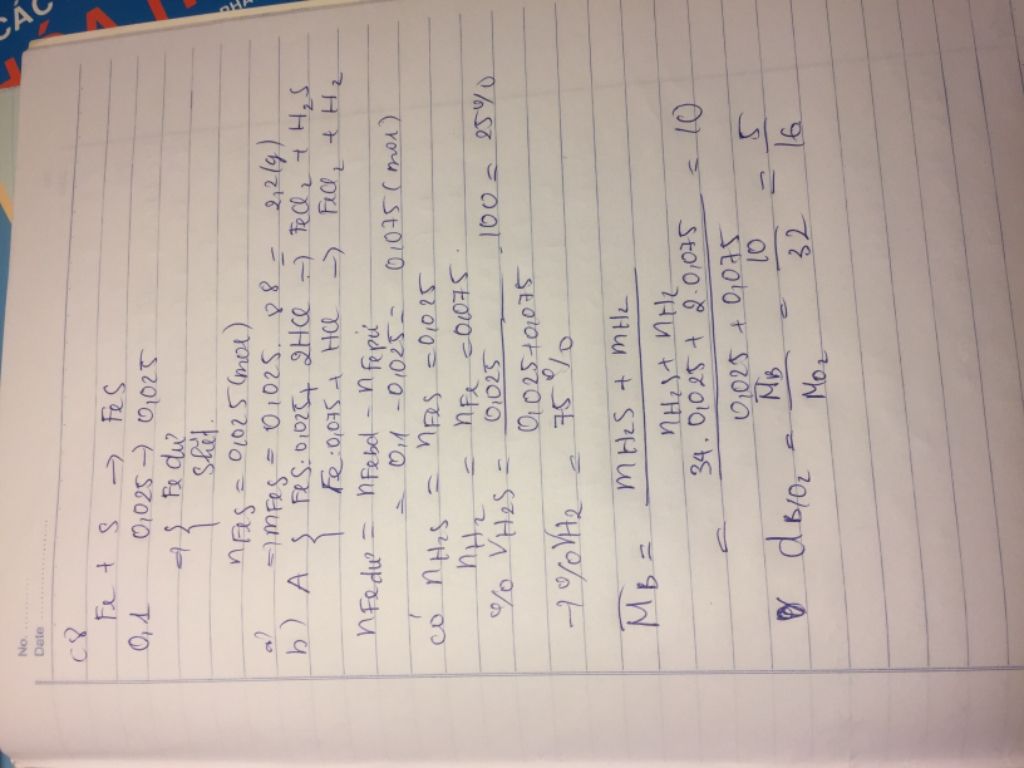 CÁC
No.
Date
C8
Fe + S → FeS
0,1 0,025 → 0,025
→ { Fe dư
S hết.
nFeS = 0,025 (mol)
a) ⇒ mFeS = 0,025 . 88 = 2,2 (g)
b) A { FeS: 0,025 + 2HCl → FeCl2 + H2S
Fe: 0,075 + HCl → FeCl2 + H2
nFe dư = nFe bđ - nFe pứ
= 0,1 - 0,025 = 0,075 (mol)
có nH2S = nFeS = 0,025
nH2 = nFe = 0,075.
% VH2S = 0,025 / 0,025 + 0,075 . 100 = 25%
→ %VH2 = 75%
MB = mH2S + mH2 / nH2S + nH2
= 34 . 0,025 + 2 . 0,075 / 0,025 + 0,075 = 10
dB/O2 = MB / MO2 = 10 / 32 = 5 / 16